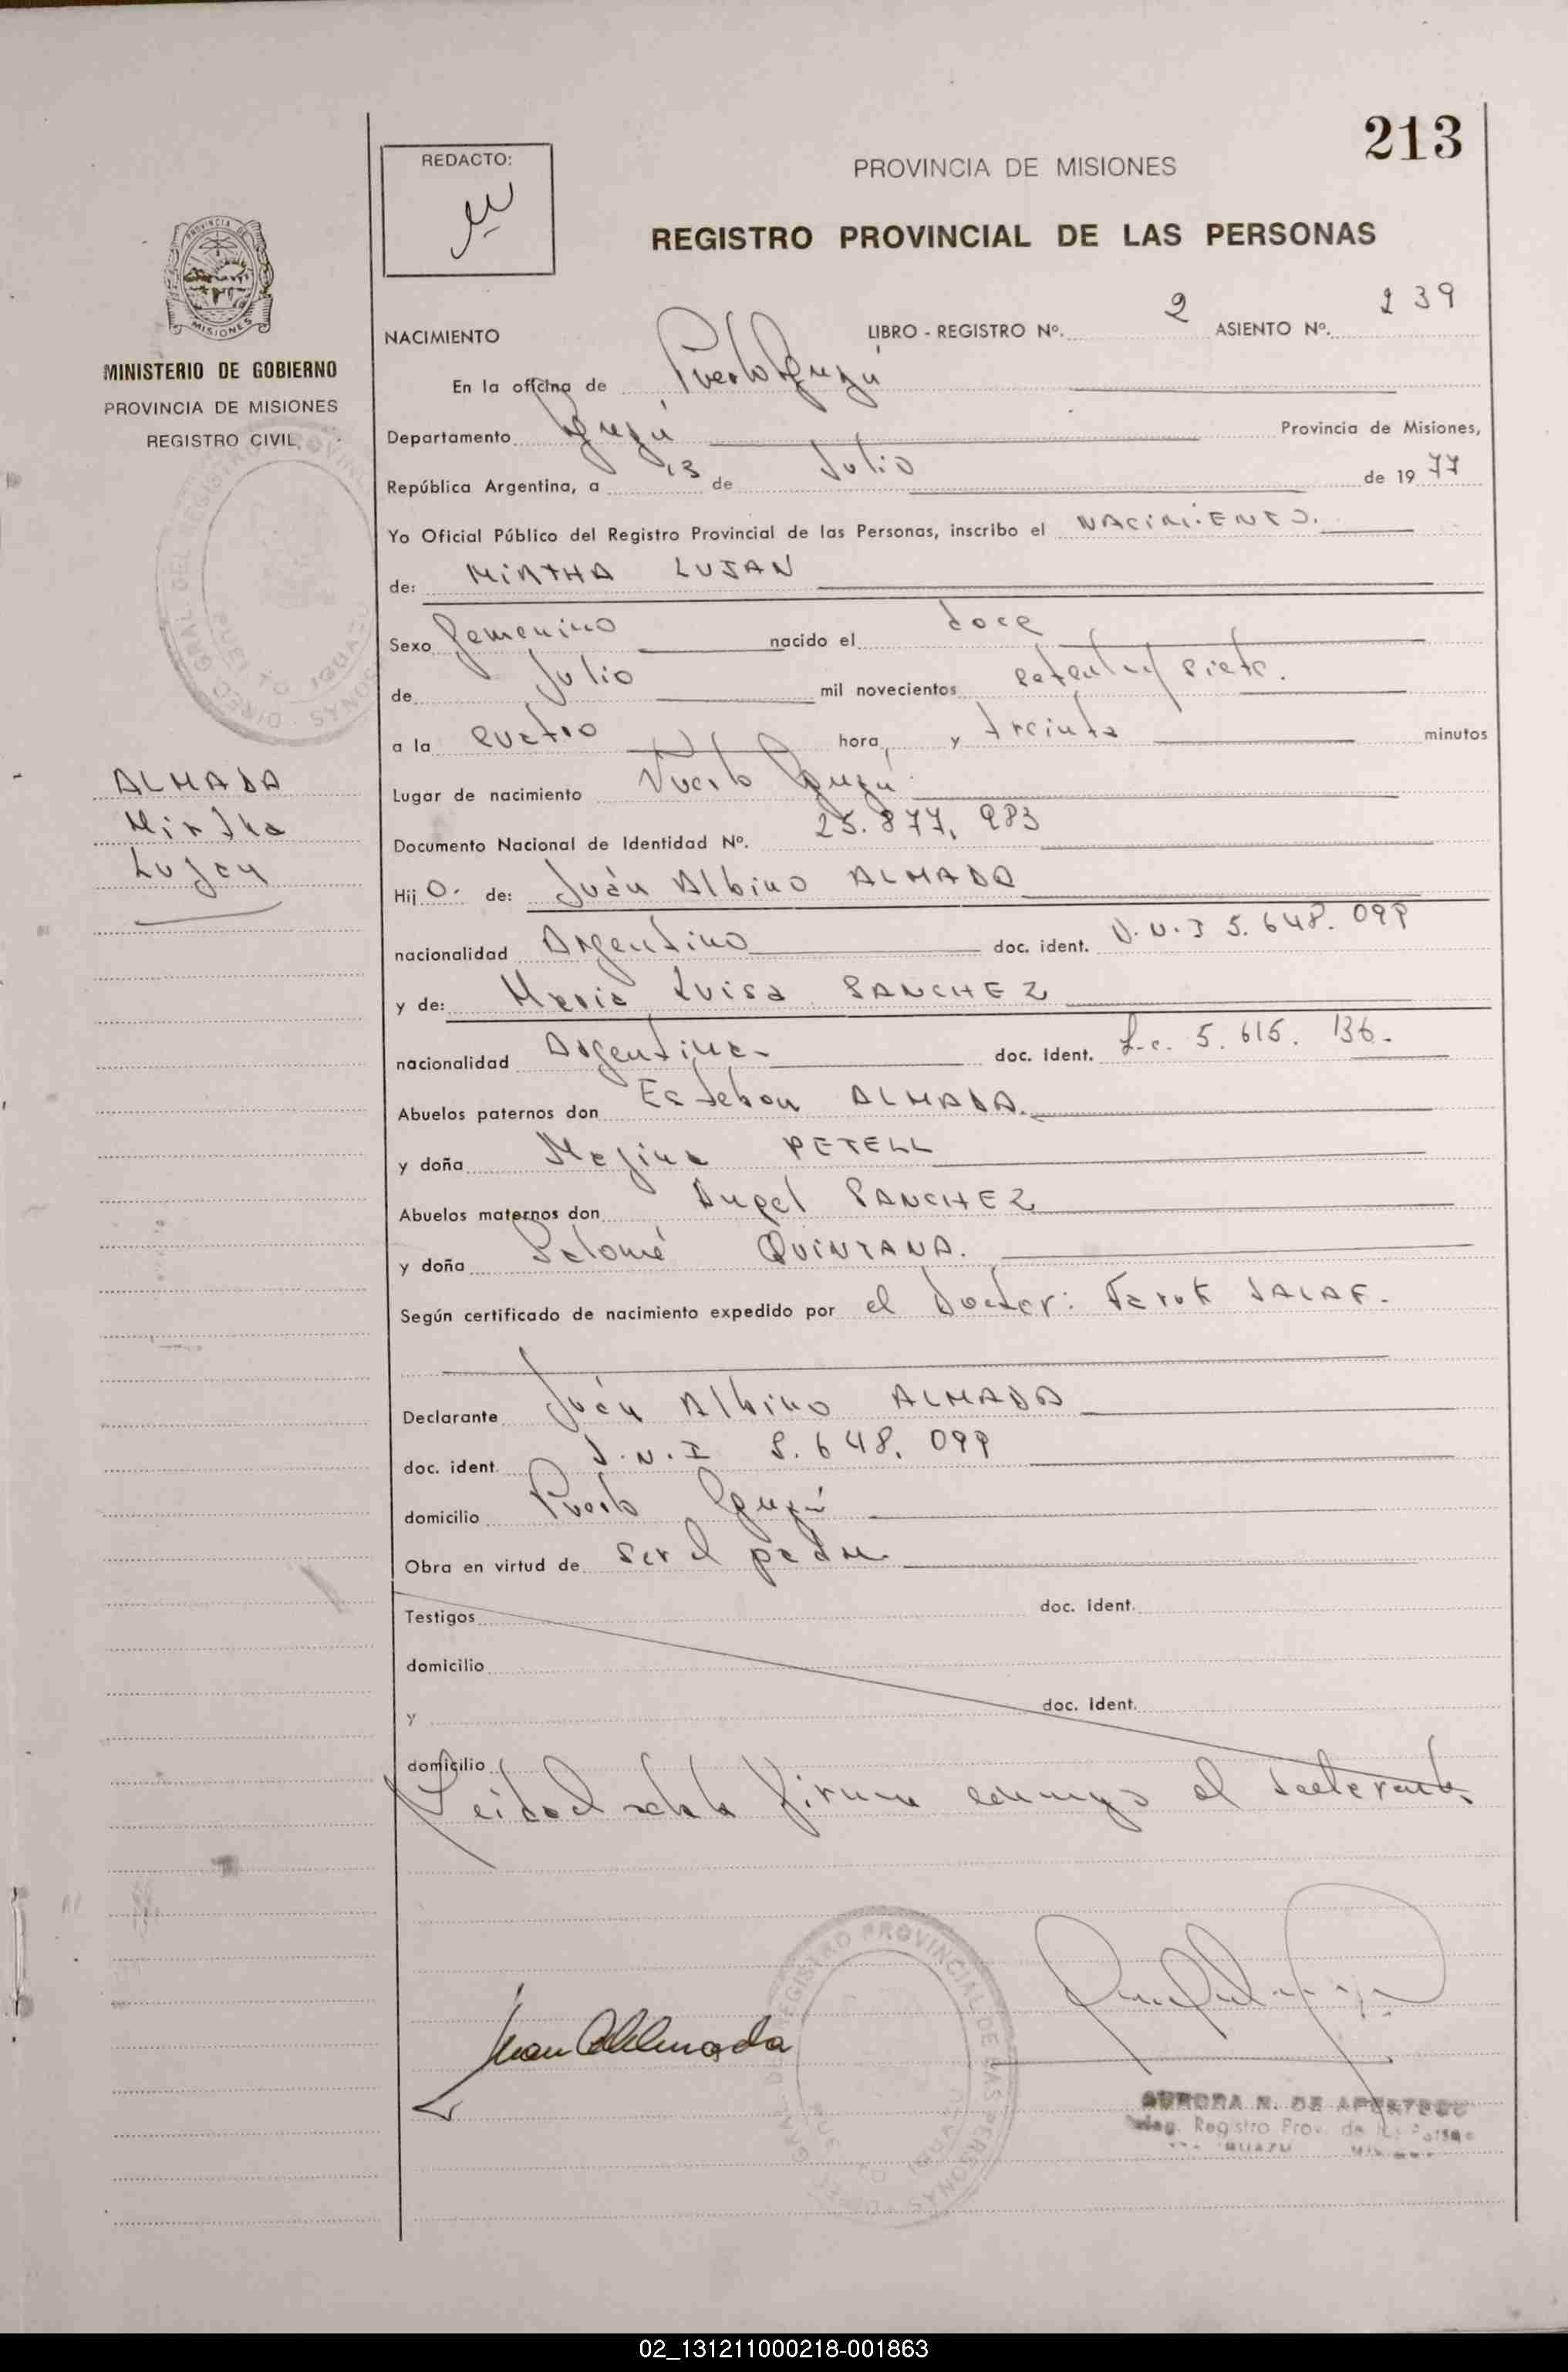 213
REDACTO:
PROVINCIA DE MISIONES
REGISTRO PROVINCIAL DE LAS PERSONAS
NACIMIENTO LIBRO - REGISTRO Nº. 2 ASIENTO Nº. 239
En la oficina de Puerto Iguazú
Departamento Iguazú Provincia de Misiones,
República Argentina, a 13 de Julio de 1977
Yo Oficial Público del Registro Provincial de las Personas, inscribo el NACIMIENTO.
de: MIRTHA LUJAN
Sexo femenino nacido el doce
de Julio mil novecientos setenta y siete.
a la cuatro hora, y treinta minutos
Lugar de nacimiento Puerto Iguazú
Documento Nacional de Identidad Nº. 25.877.983
Hij de: Juán Albino ALMADA
nacionalidad Argentino doc. ident. D.N.I 5.648.099
y de: María Luisa SANCHEZ
nacionalidad Argentina doc. ident. L.c. 5.615.136.
Abuelos paternos don Esteban ALMADA.
y doña PETELL
Abuelos maternos don Angel SANCHEZ
y doña Salomé QUINTANA.
Según certificado de nacimiento expedido por el Doctor: Faruk JALAF.
Declarante Juán Albino ALMADA
doc. ident. D.N.I 5.648.099
domicilio Puerto Iguazú
Obra en virtud de ser el padre
Testigos doc. ident.
domicilio
y doc. ident.
domicilio
Leida el acta la firma conmigo el declarante
Juan A Almada
AURORA N. DE
Deleg. Registro Prov. de las Personas
IGUAZU
DIREC. GRAL. DEL REGISTRO PROVINCIAL DE LAS PERSONAS
PUERTO IGUAZU
PROVINCIA DE MISIONES
MINISTERIO DE GOBIERNO
PROVINCIA DE MISIONES
REGISTRO CIVIL
ALMADA
Mirtha
Lujan
02_131211000218-001863